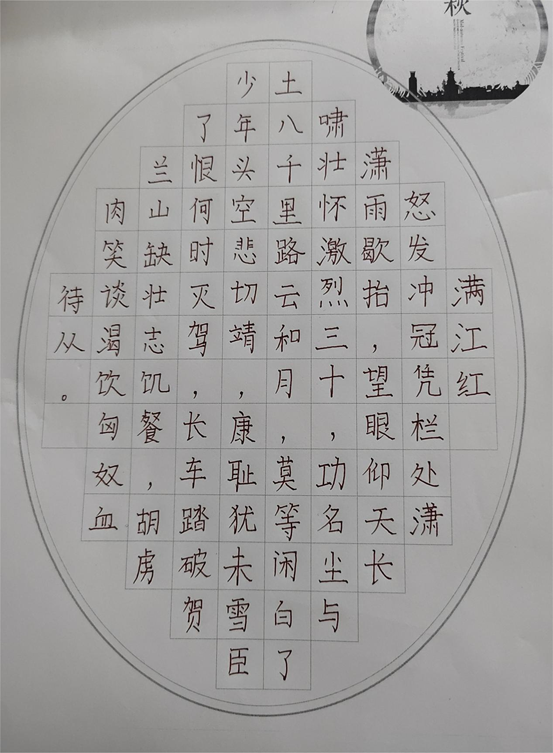 秋
满江红
怒发冲冠凭栏处潇
潇雨歇抬，望眼仰天长
啸壮怀激烈三十，功名尘与
土八千里路云和月，莫等闲白了
少年头空悲切靖，康耻犹未雪臣
了恨何时灭驾，长车踏破贺
兰山缺壮志饥餐，胡虏
肉笑谈渴饮匈奴血
待从。